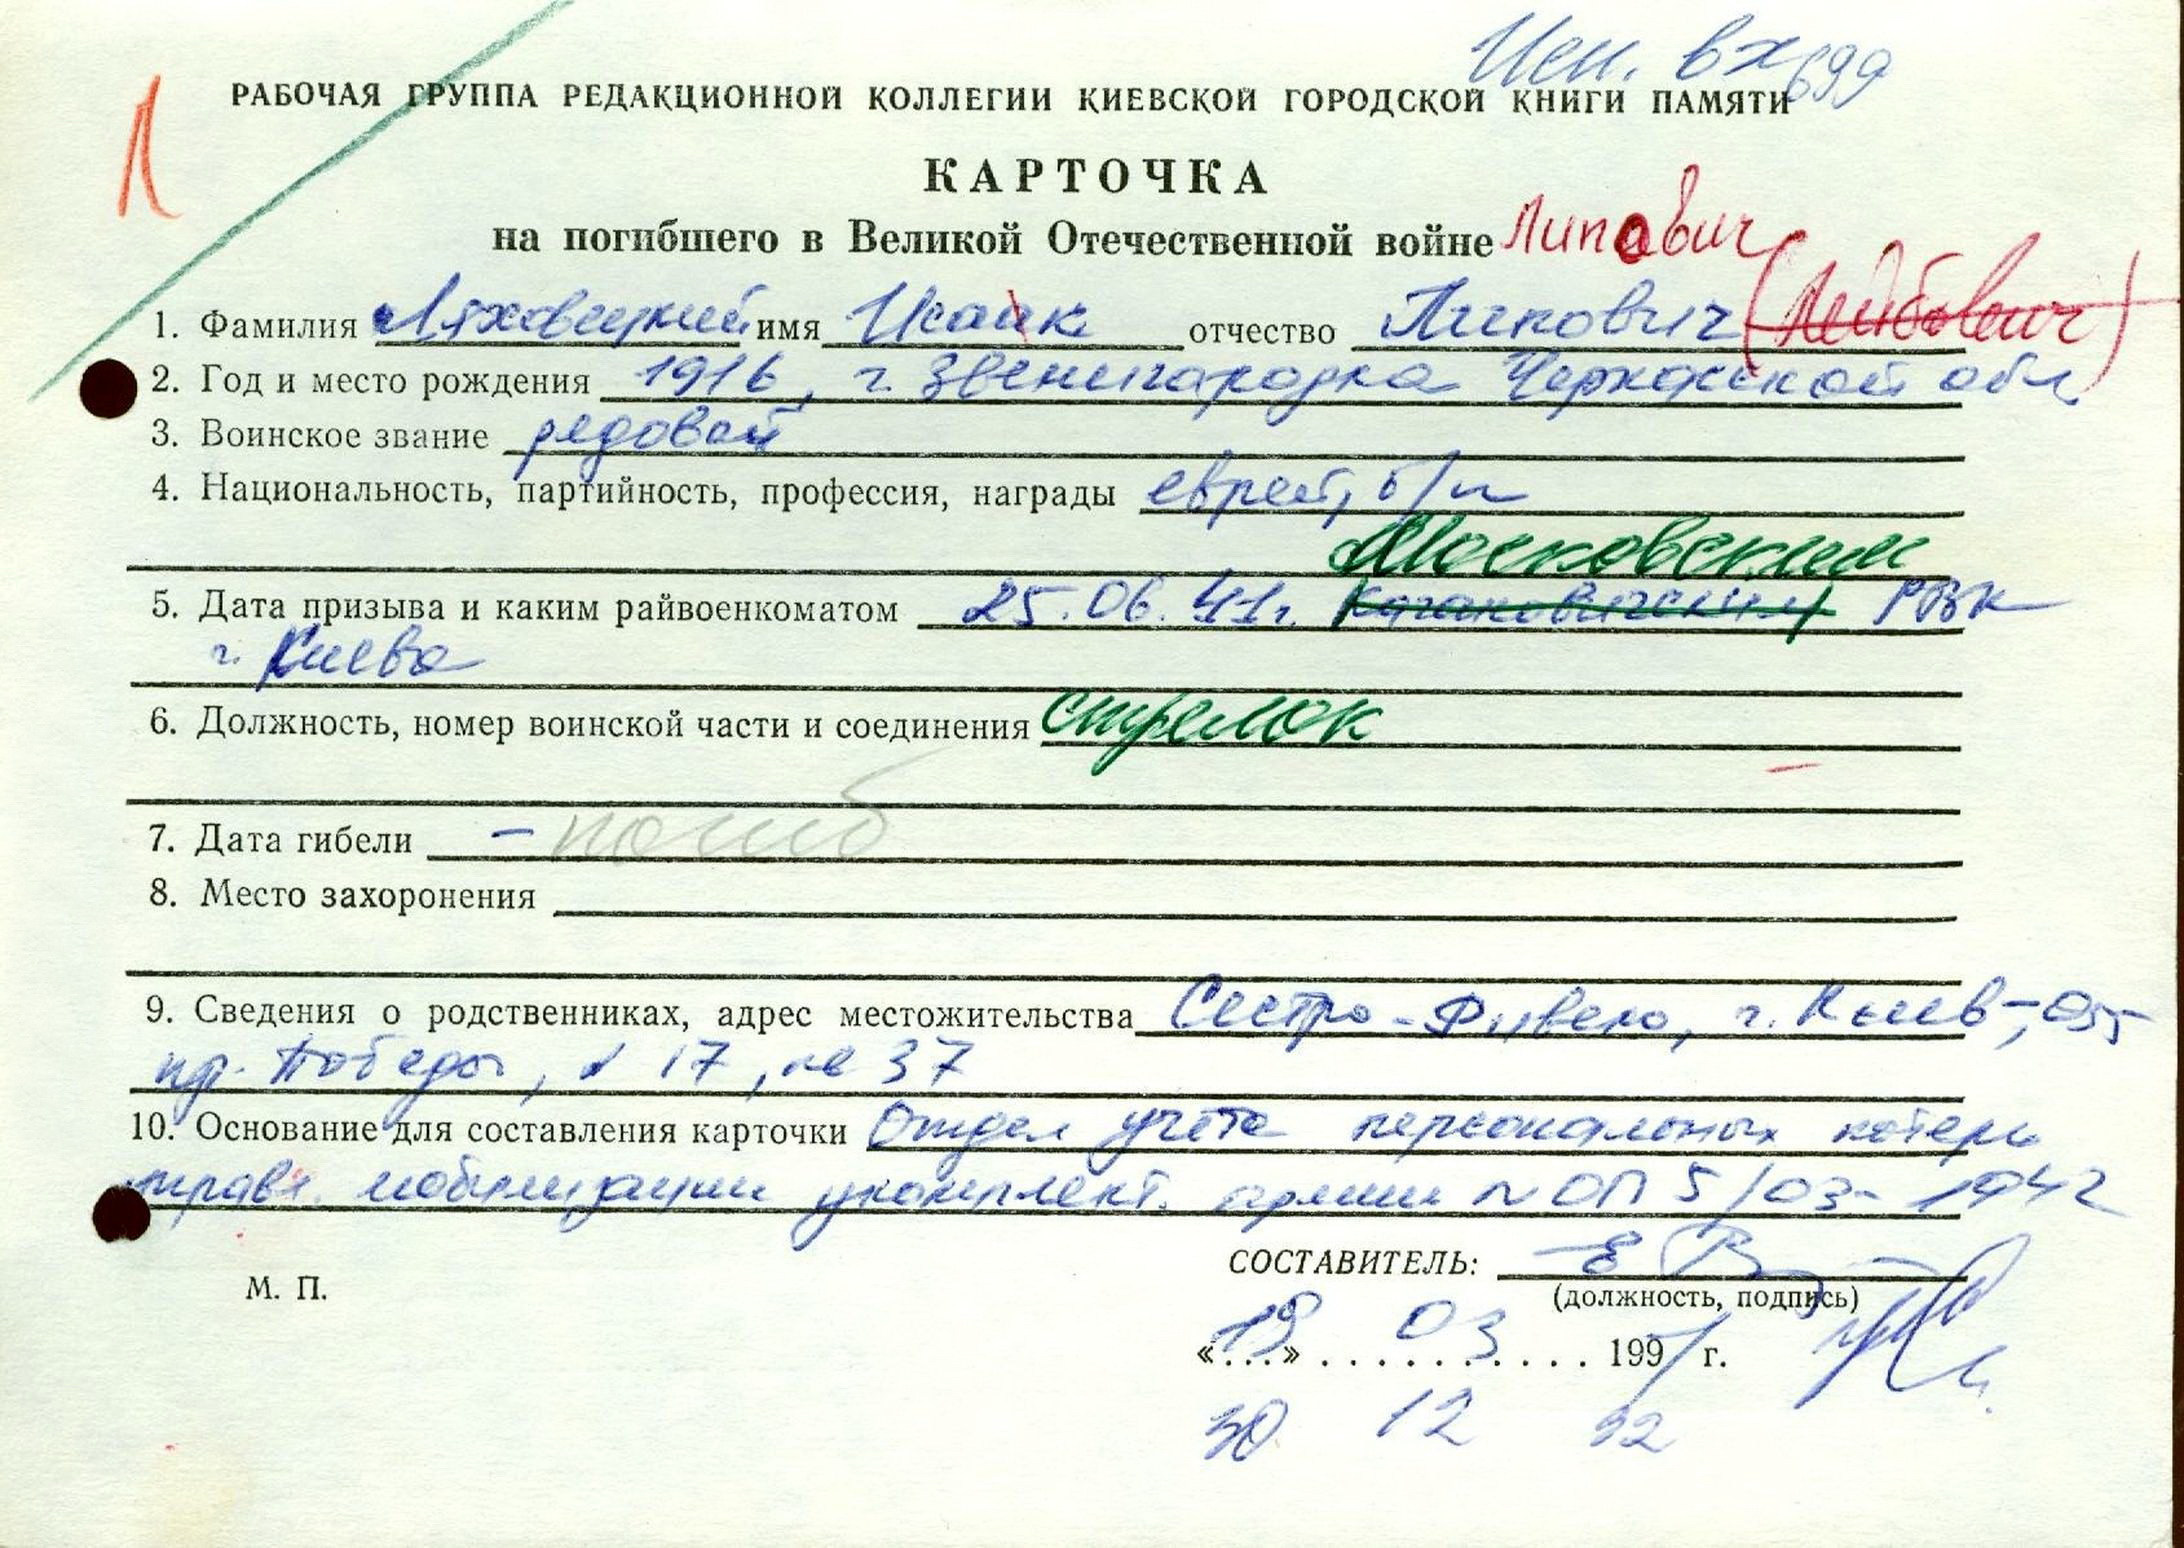 Исп. вх 699
Л
РАБОЧАЯ ГРУППА РЕДАКЦИОННОЙ КОЛЛЕГИИ КИЕВСКОЙ ГОРОДСКОЙ КНИГИ ПАМЯТИ
КАРТОЧКА
на погибшего в Великой Отечественной войне Липович
1. Фамилия Ляховецкий имя Исаак отчество Пикович (Лейбович)
2. Год и место рождения 1916, г. Звенигородка Черкасской обл
3. Воинское звание рядовой
4. Национальность, партийность, профессия, награды еврей, б/п
Московским
5. Дата призыва и каким райвоенкоматом 25.06.41г. Кагановическим РВК
г. Киева
6. Должность, номер воинской части и соединения стрелок
7. Дата гибели – погиб
8. Место захоронения
9. Сведения о родственниках, адрес местожительства Сестра - Ривека, г. Киев-, 055
пр. Победы, д 17, кв 37
10. Основание для составления карточки Отдел учёта персональных потерь
управл. мобилизации укомплект. армии N ОП 5/03- 1942
СОСТАВИТЕЛЬ:
(должность, подпись)
М. П.
«19» 03 1997 г.
30 12 92